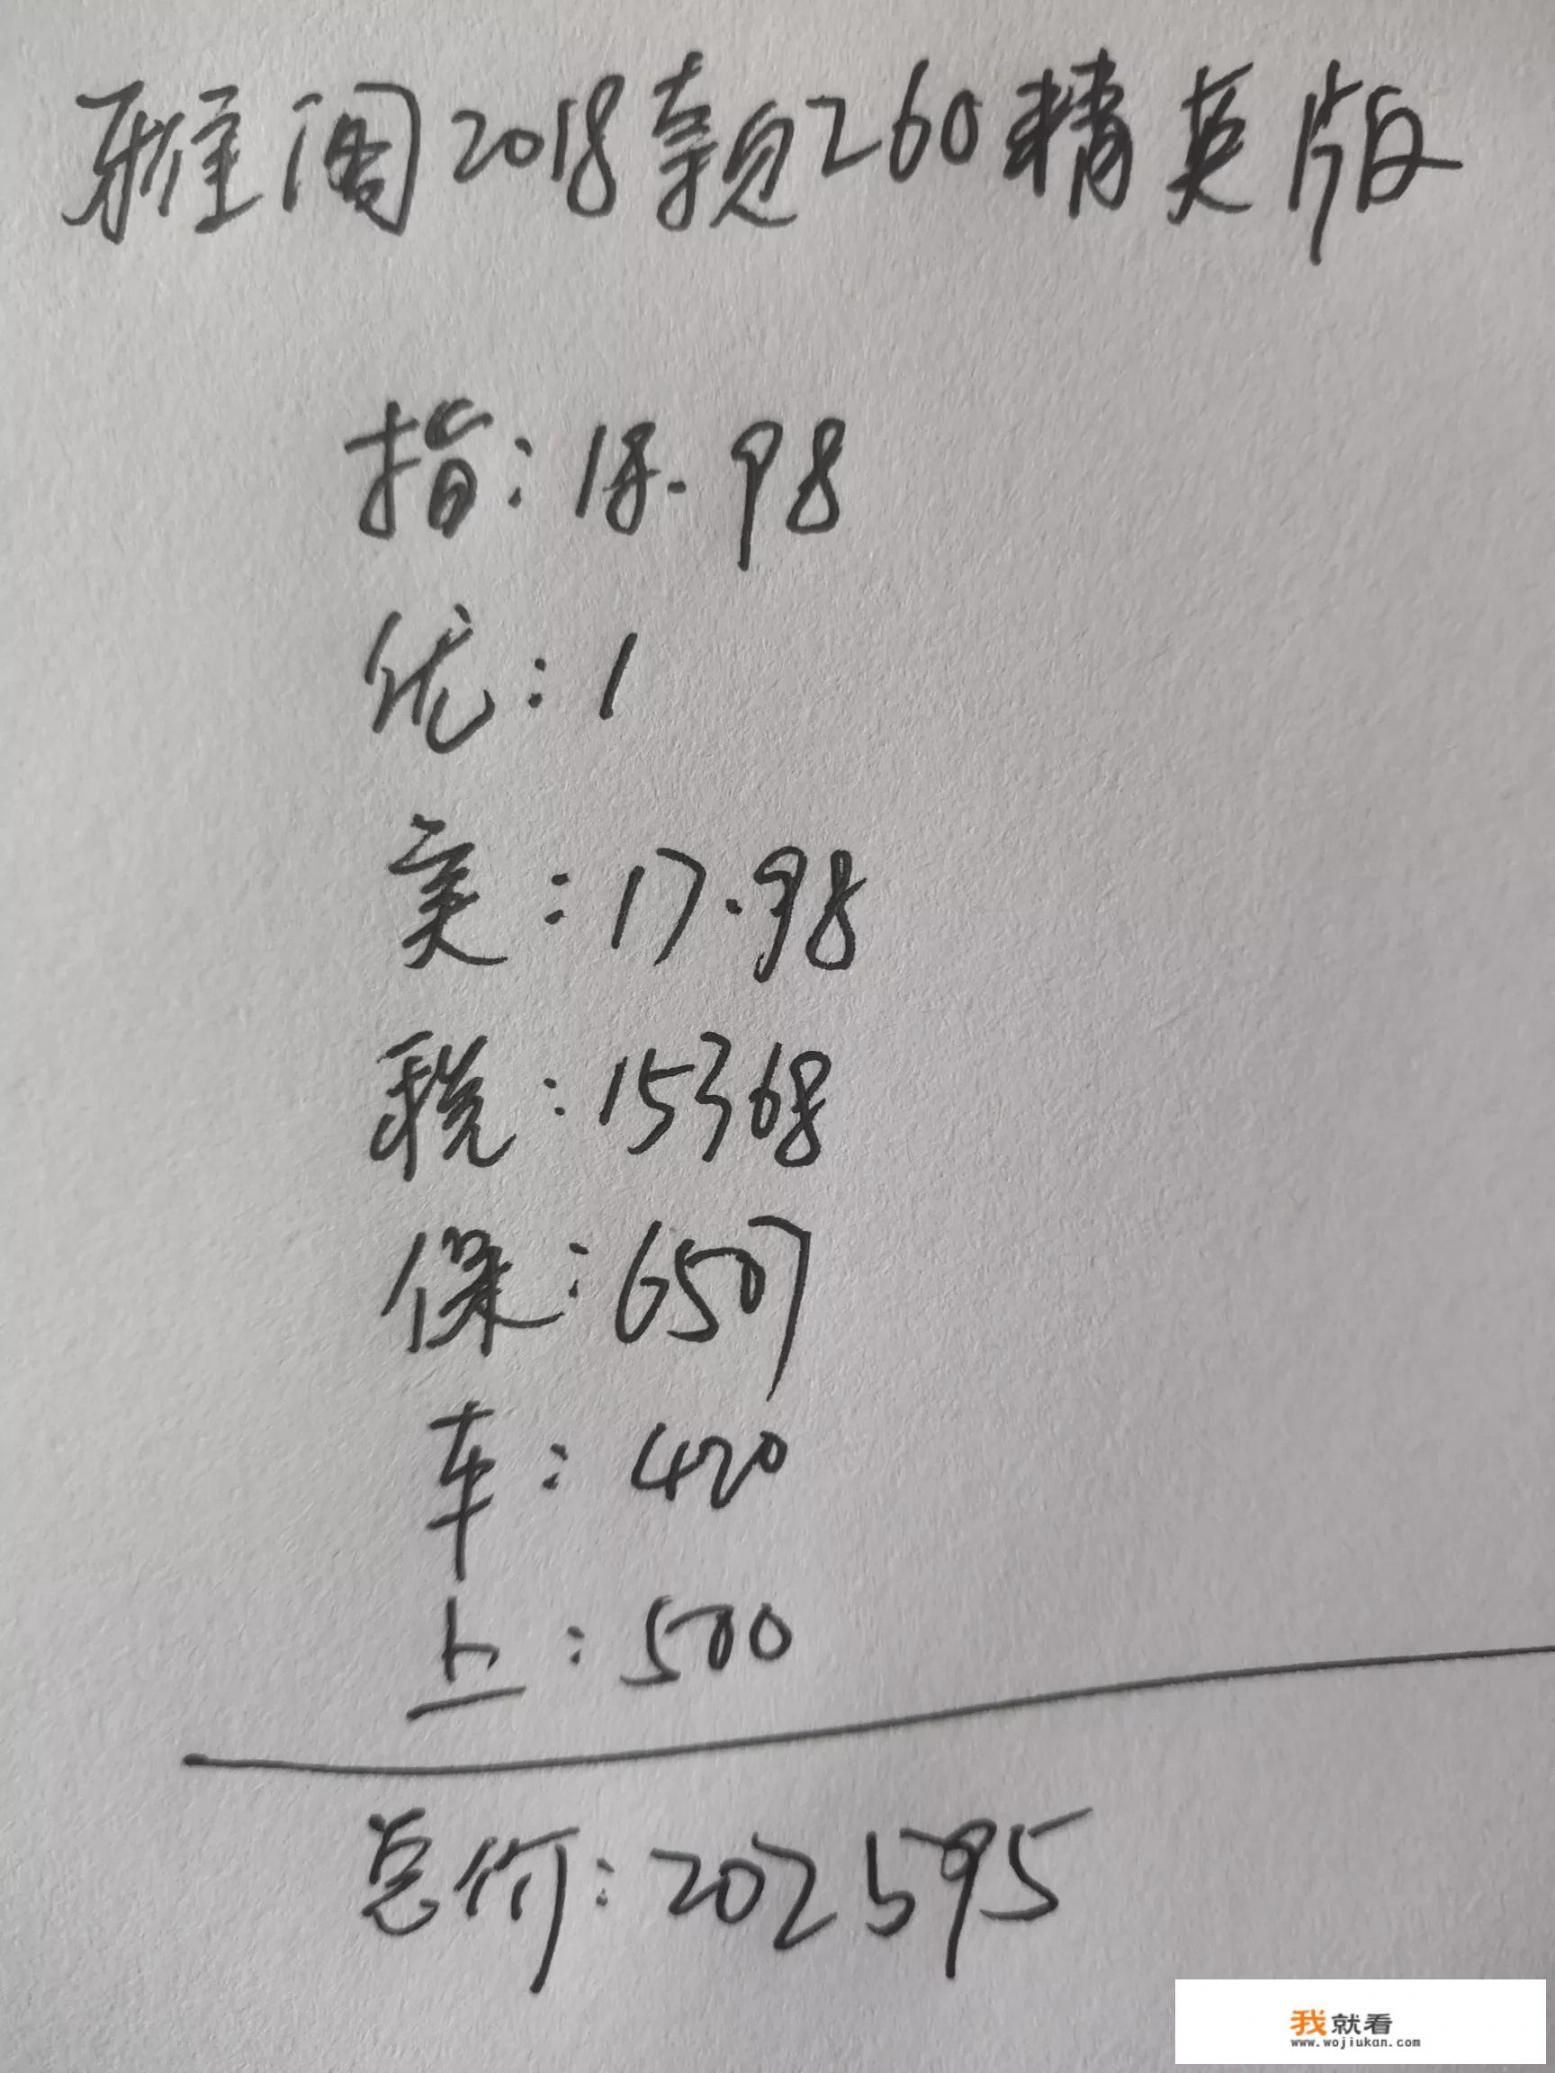 雅阁2018款260精英版
指:18.98
优:1
卖:17.98
税:15368
保:6507
车:420
上:500
总价:202595
我就看
www.wojiukan.com